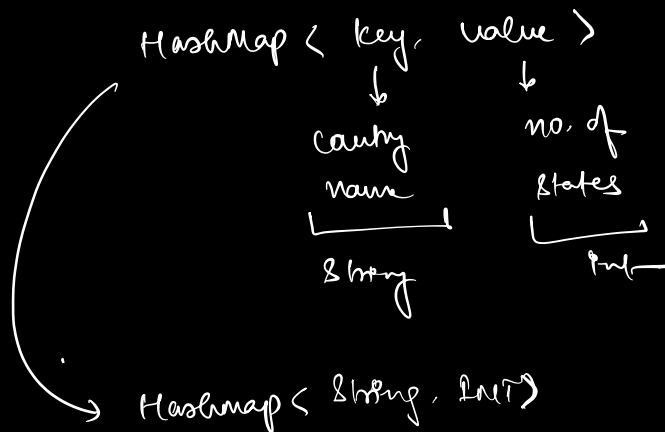 HashMap < key, value >
country no. of
name states
String int
Hashmap < String, INT>